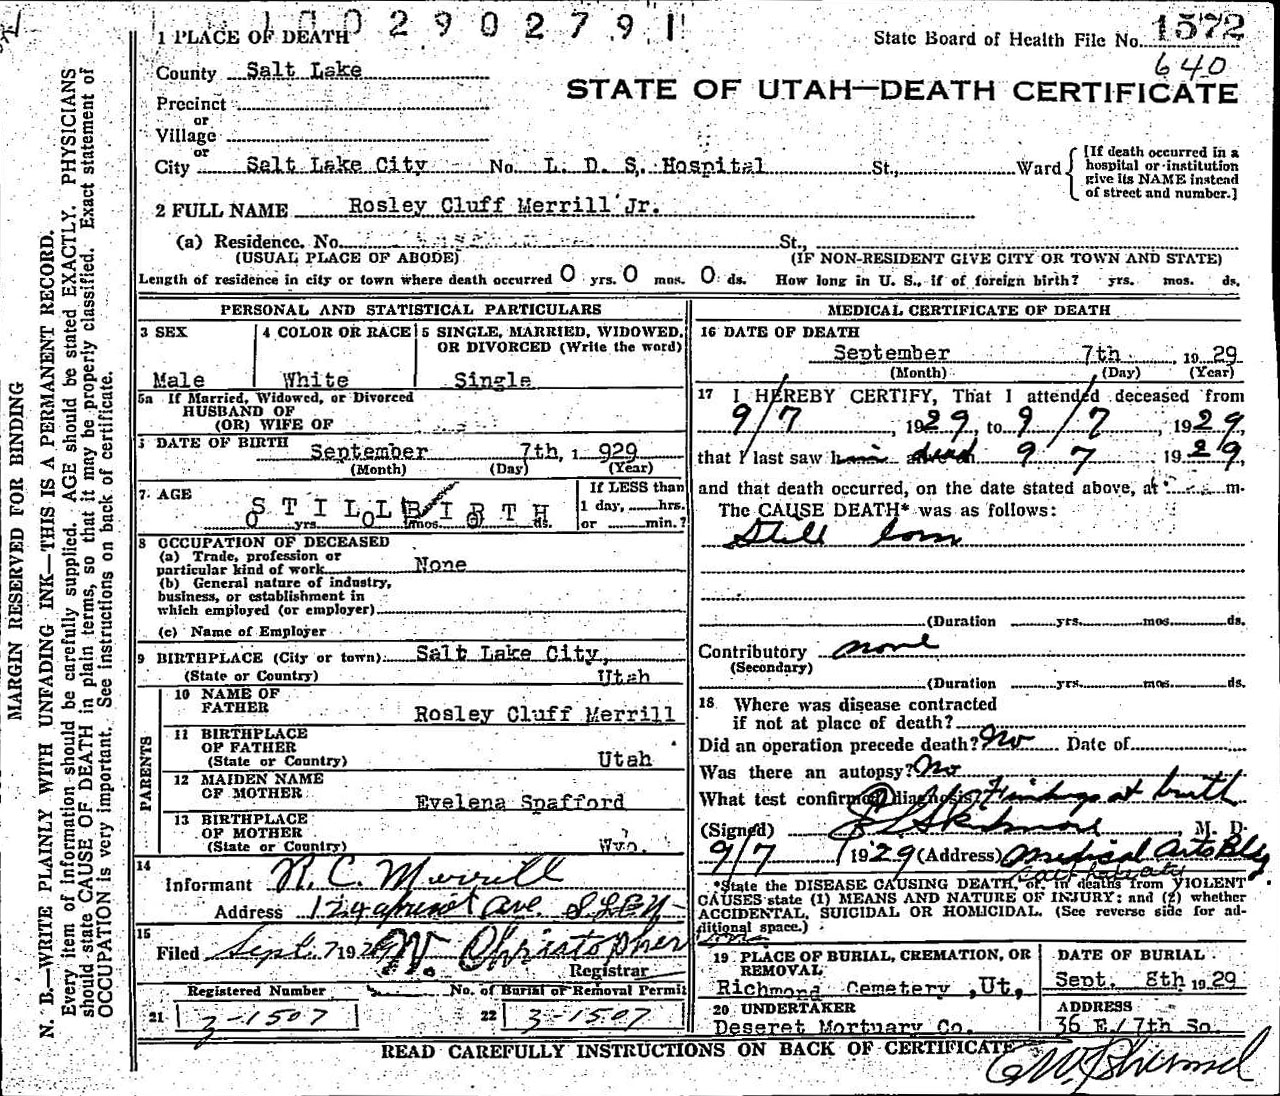 1 0 0 2 9 0 2 7 9 1
1572
1 PLACE OF DEATH
State Board of Health File No.
640
County Salt Lake
STATE OF UTAH—DEATH CERTIFICATE
Precinct
or
Village
or
City Salt Lake City No. L. D. S. Hospital St., Ward
[If death occurred in a
hospital or institution
give its NAME instead
of street and number.]
2 FULL NAME Rosley Cluff Merrill Jr.
(a) Residence. No. St.,
(USUAL PLACE OF ABODE) (IF NON-RESIDENT GIVE CITY OR TOWN AND STATE)
Length of residence in city or town where death occurred 0 yrs. 0 mos. 0 ds. How long in U. S., if of foreign birth? yrs. mos. ds.
PERSONAL AND STATISTICAL PARTICULARS
3 SEX
Male
4 COLOR OR RACE
White
5 SINGLE, MARRIED, WIDOWED,
OR DIVORCED (Write the word)
Single
5a If Married, Widowed, or Divorced
HUSBAND OF
(OR) WIFE OF
DATE OF BIRTH
September 7th, 1 929
(Month) (Day) (Year)
7. AGE
STILLBIRTH
0 yrs. 0 mos. 0 ds.
If LESS than
1 day, hrs.
or min.?
8 OCCUPATION OF DECEASED
(a) Trade, profession or
particular kind of work None
(b) General nature of industry,
business, or establishment in
which employed (or employer)
(c) Name of Employer
9 BIRTHPLACE (City or town) Salt Lake City,
(State or Country) Utah
PARENTS
10 NAME OF
FATHER
Rosley Cluff Merrill
11 BIRTHPLACE
OF FATHER
(State or Country) Utah
12 MAIDEN NAME
OF MOTHER
Evelena Spafford
13 BIRTHPLACE
OF MOTHER
(State or Country) Wyo.
14
Informant R. C. Merrill
Address 124 apricot Ave.
15
Filed Sept. 7 19 W. Christopher
Registrar
Registered Number No. of Burial or Removal Permit
21 3-1507 22 3-1507
MEDICAL CERTIFICATE OF DEATH
16 DATE OF DEATH
September 7th 19 29
(Month) (Day) (Year)
17 I HEREBY CERTIFY, That I attended deceased from
9/7, 1929, to 9/7, 1929,
that I last saw him dead 9 7 1929,
and that death occurred, on the date stated above, at m.
The CAUSE DEATH* was as follows:
Still born
(Duration yrs. mos. ds.
Contributory none
(Secondary)
(Duration yrs. mos. ds.
18 Where was disease contracted
if not at place of death?
Did an operation precede death? No Date of
Was there an autopsy? No
What test confirmed diagnosis? Findings at birth
(Signed) Skidmore, M. D.
9/7 1929 (Address) Medical Arts Bldg.
*State the DISEASE CAUSING DEATH, or, in deaths from VIOLENT
CAUSES state (1) MEANS AND NATURE OF INJURY: and (2) whether
ACCIDENTAL, SUICIDAL OR HOMICIDAL. (See reverse side for ad-
ditional space.)
19 PLACE OF BURIAL, CREMATION, OR
REMOVAL
Richmond Cemetery, Ut,
DATE OF BURIAL
Sept. 8th 1929
20 UNDERTAKER
Deseret Mortuary Co.
ADDRESS
36 E. 7th So.
READ CAREFULLY INSTRUCTIONS ON BACK OF CERTIFICATE
MARGIN RESERVED FOR BINDING
N. B.—WRITE PLAINLY WITH UNFADING INK—THIS IS A PERMANENT RECORD.
Every item of information should be carefully supplied. AGE should be stated EXACTLY. PHYSICIANS
should state CAUSE OF DEATH in plain terms, so that it may be properly classified. Exact statement of
OCCUPATION is very important. See instructions on back of certificate.